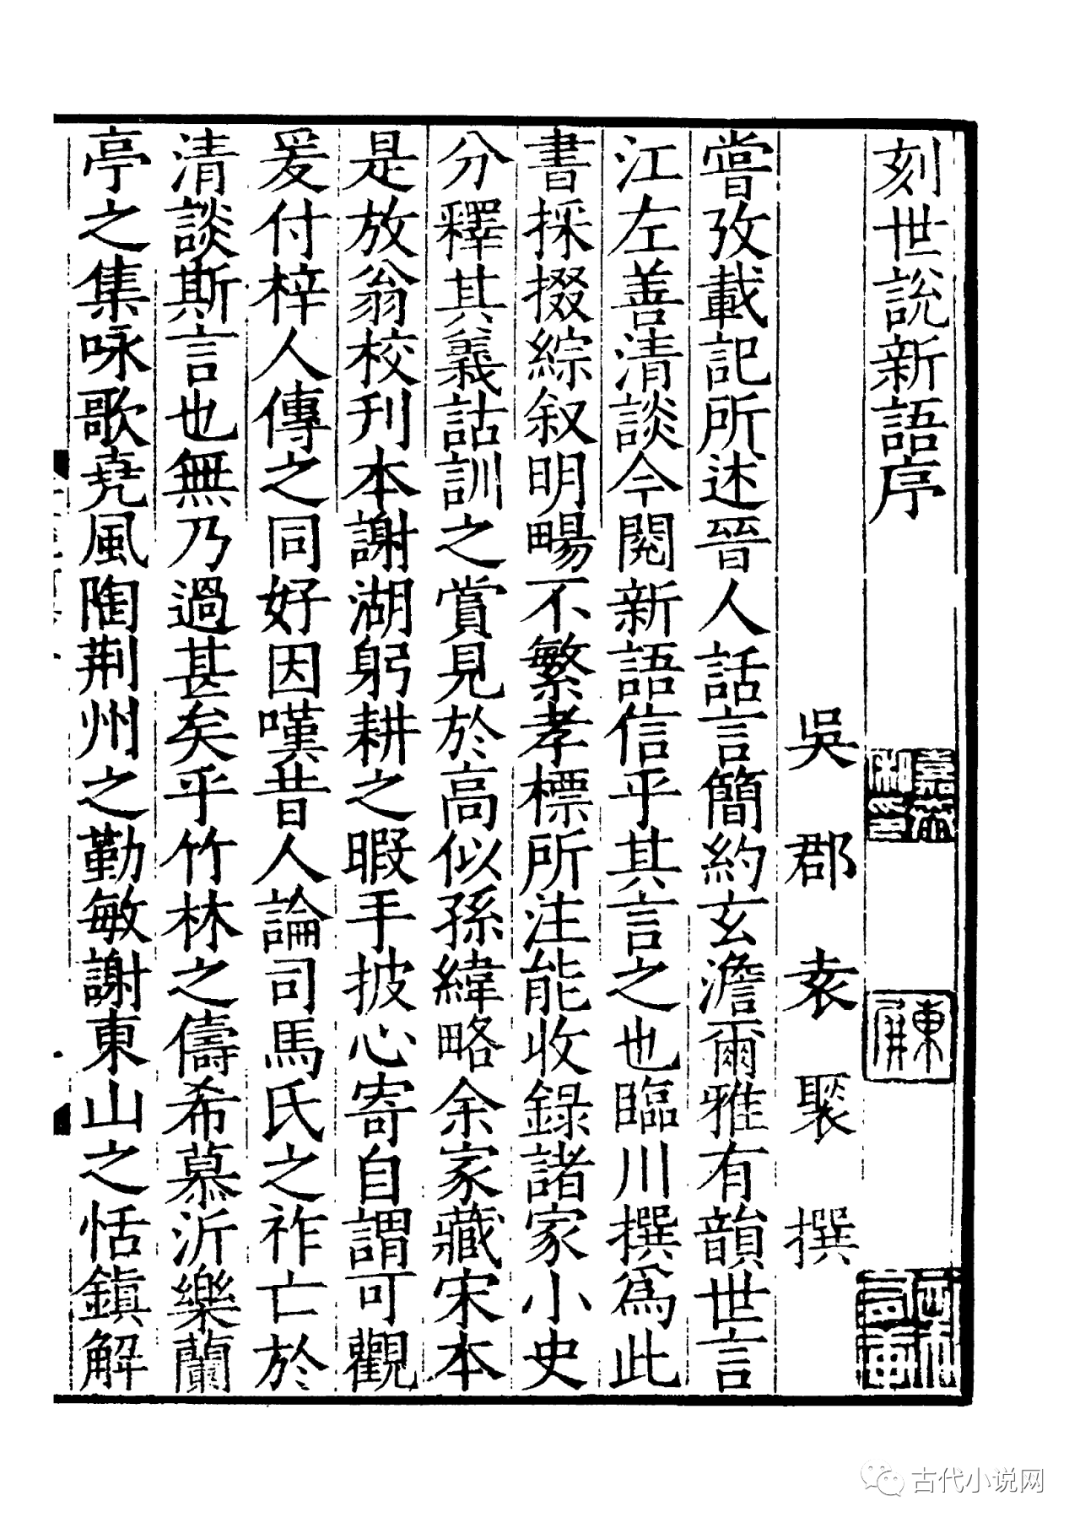 刻世說新語序
吳郡袁褧撰
嘗攷載記所述晉人話言簡約玄澹爾雅有韻世言
江左善清談今閱新語信乎其言之也臨川撰爲此
書採掇綜叙明暢不繁孝標所注能收錄諸家小史
分釋其義詁訓之賞見於高似孫緯略余家藏宋本
是放翁校刊本謝湖躬耕之暇手披心寄自謂可觀
爰付梓人傳之同好因嘆昔人論司馬氏之祚亡於
清談斯言也無乃過甚矣乎竹林之儔希慕沂樂蘭
亭之集咏歌堯風陶荆州之勤敏謝東山之恬鎮解
東屏
古代小说网